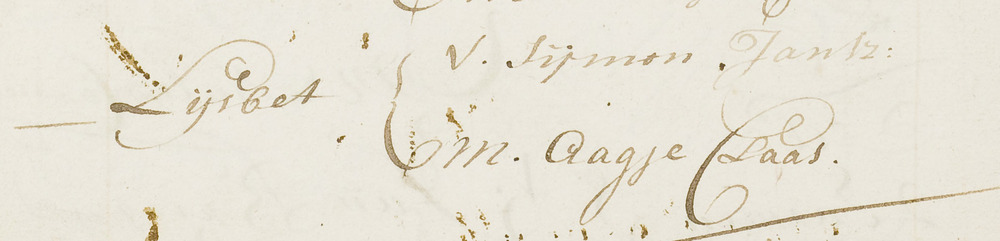 Lijsbet
V. Sijmon Jansz:
M. Aagje Claas.